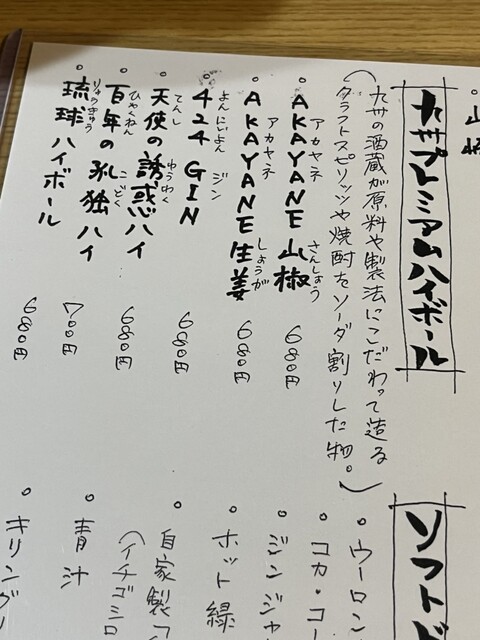 ・山崎
九州プレミアムハイボール
(九州の酒蔵が原料や製法にこだわって造る
クラフトスピリッツや焼酎をソーダ割りした物。)
アカヤネ さんしょう
・AKAYANE山椒 680円
アカヤネ しょうが
・AKAYANE生姜 680円
よんにいよん ジン
・424 GIN 680円
てんし ゆうわく
・天使の誘惑ハイ 680円
ひゃくねん こどく
・百年の孤独ハイ 700円
りゅうきゅう
・琉球ハイボール 680円
ソフトド
・ウーロン
・コカ・コ
・ジンジャ
・ホット緑
・自家製
(イチゴミロ
・青汁
・キリング